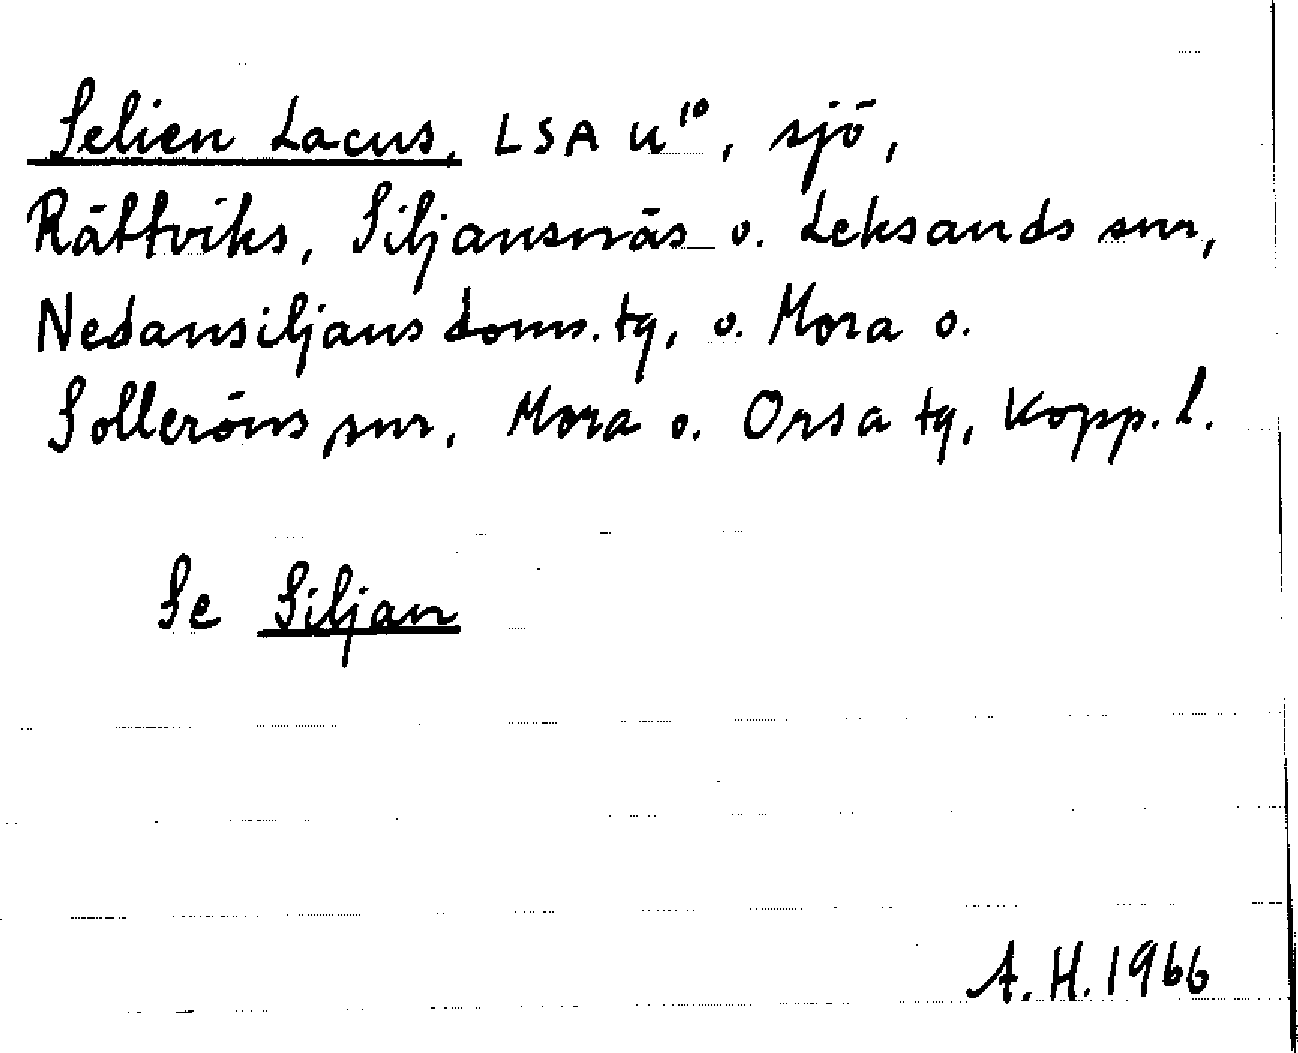 Selien Lacus, LSA U¹⁰, sjö,
Rättviks, Siljansnäs o. Leksands snr,
Nedansiljans doms. tg, o. Mora o.
Solleröns snr, Mora o. Orsa tg, Kopp. l.
Se Siljan
A. H. 1966